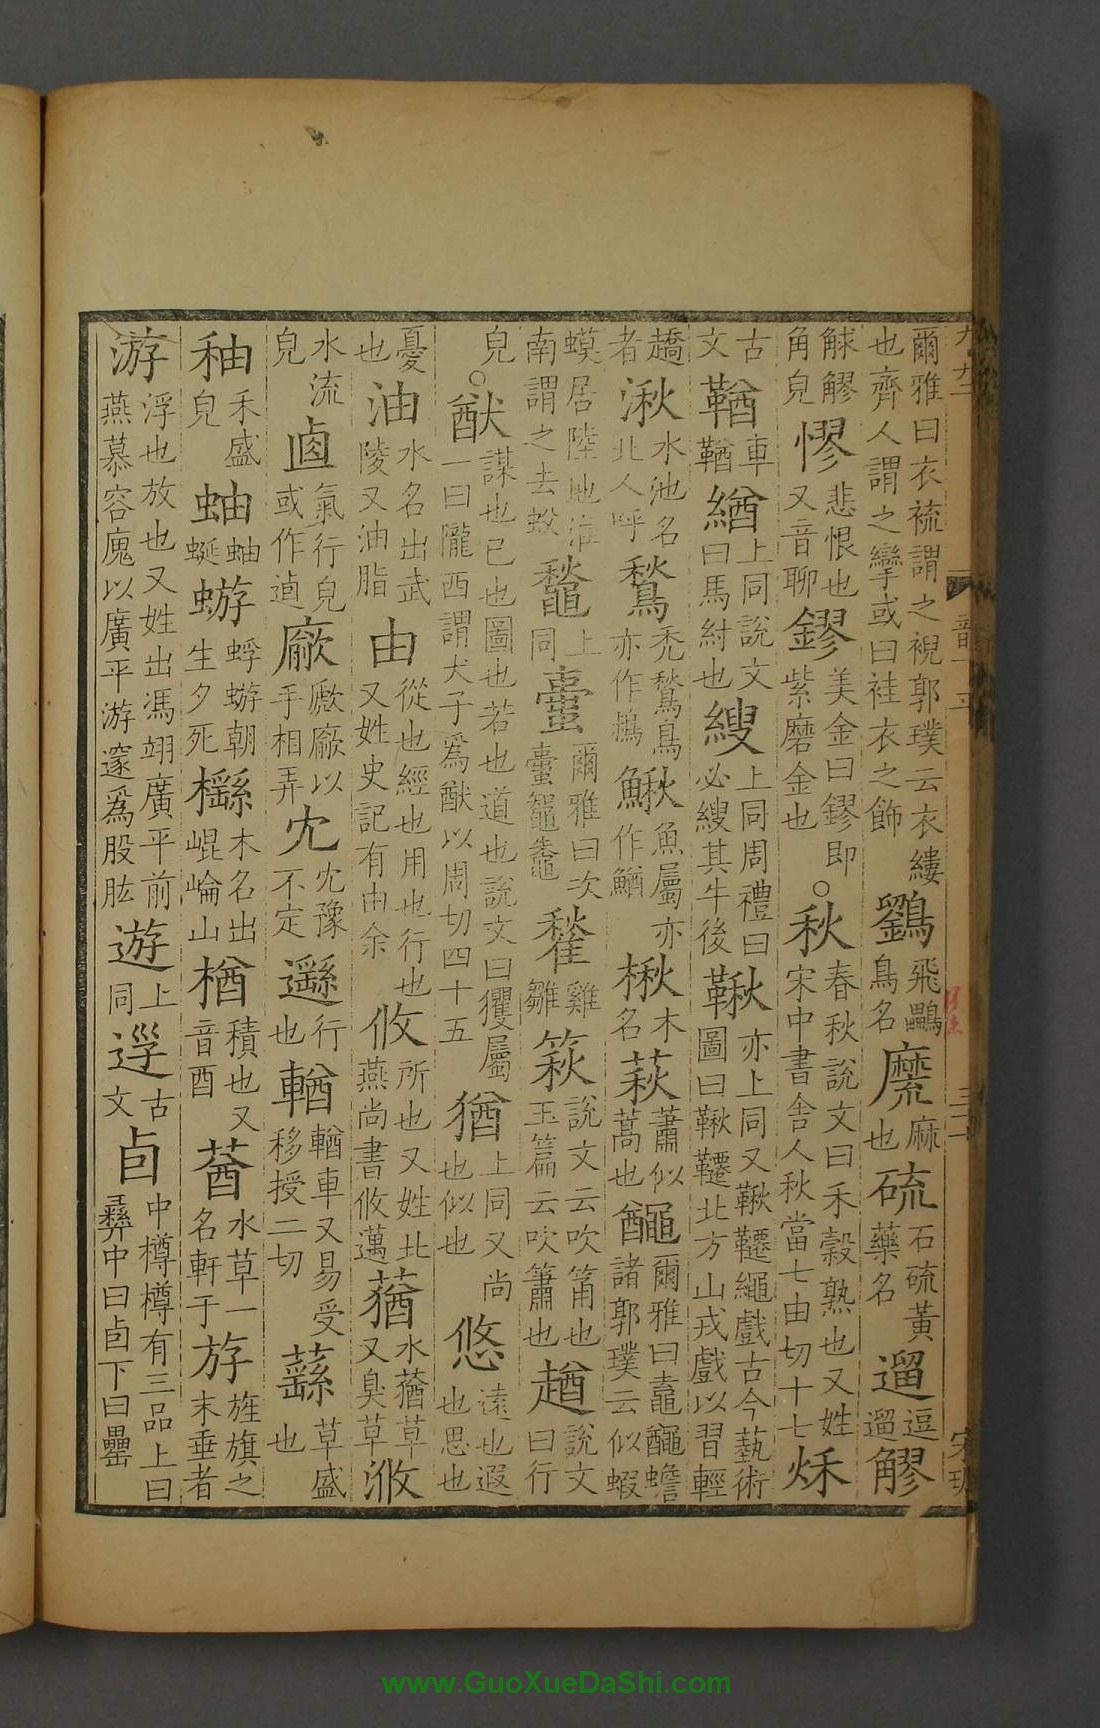 爾雅曰衣裗謂之䙿郭璞云衣縷也齊人謂之攣或曰袿衣之飾鷚飛鸓鳥名䕷麻也硫石硫黃藥名遛逗遛䚧
觩䚧角皃憀悲恨也又音聊鏐美金曰鏐即紫磨金也○秋春秋說文曰禾穀熟也又姓宋中書舍人秋當七由切十七秌
古文鞧車鞧緧上同說文曰馬紂也䋺上同周禮曰必䋺其牛後鞦亦上同又鞦韆繩戲古今藝術圖曰鞦韆北方山戎戲以習輕
趫者湫水池名北人呼鶖禿鶖鳥亦作䳔鰍魚屬亦作鰌楸木名萩蕭似蒿也䵸爾雅曰鼁䵸蟾諸郭璞云似蝦
蟆居陸地淮南謂之去蚥鼀上同䗥爾雅曰次䗥鼅鼄䨂雞雛篍說文云吹筩也玉篇云吹簫也趥說文曰行
皃○猷謀也已也圖也若也道也說文曰玃屬一曰隴西謂犬子爲猷以周切四十五猶上同又尚也似也悠遠也遐也思也
憂也油水名出武陵又油脂由從也經也用也行也又姓史記有由余攸所也又姓北燕尚書攸邁蕕水蕕草又臭草浟
水流皃逌氣行皃或作逌廞廞以手相弄冘冘豫不定邎行也輶輶車又易受移授二切蘨草盛也
秞禾盛皃蚰蚰蜒蝣蜉蝣朝生夕死櫾木名出崐崘山楢積也又音酉蕕水草一名軒于斿旌旗之末垂者
游浮也放也又姓出馮翊廣平前燕慕容廆以廣平游邃爲股肱遊上同逕古文卣中樽樽有三品上曰彝中曰卣下曰罍
音下平
三十
www.GuoXueDaShi.com